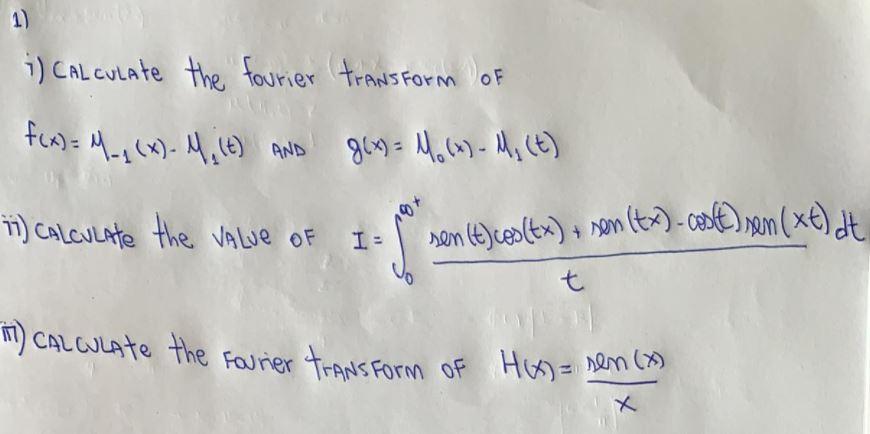 1)
i) CALCULATE the fourier transform OF
f(x) = M₋₁(x) - M₁(t) AND g(x) = M₀(x) - M₁(t)
ii) CALCULATE the VALUE OF I = ∫₀^∞⁺ sen(t)cos(tx) + sen(tx) - cos(t) sen(xt) dt
t
iii) CALCULATE the Fourier transform OF H(x) = sen(x)
x